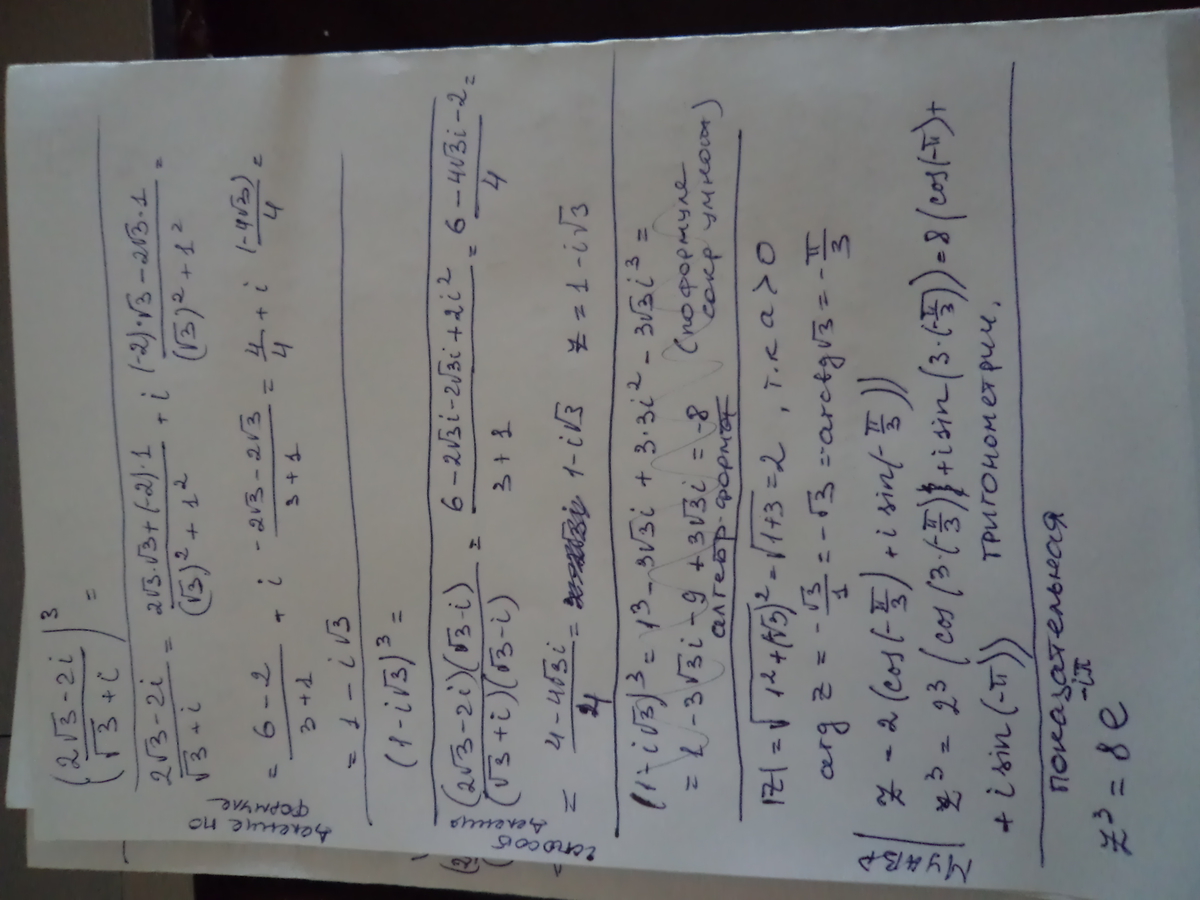 (2√3 − 2i / √3 + i)³ =
деление по формуле
2√3 − 2i / √3 + i = 2√3·√3 + (−2)·1 / (√3)² + 1² + i (−2)·√3 − 2√3·1 / (√3)² + 1² =
= 6 − 2 / 3 + 1 + i −2√3 − 2√3 / 3 + 1 = 4/4 + i (−4√3)/4 =
= 1 − i√3
(1 − i√3)³ =
2 способ деления
(2√3 − 2i)(√3 − i) / (√3 + i)(√3 − i) = 6 − 2√3i − 2√3i + 2i² / 3 + 1 = 6 − 4√3i − 2 / 4 =
= 4 − 4√3i / 4 = 1 − i√3 z = 1 − i√3
(1 − i√3)³ = 1³ − 3√3i + 3·3i² − 3√3i³ =
= 1 − 3√3i − 9 + 3√3i = −8 (по формуле
алгебр. форма сокр умнож)
|z| = √1² + (√3)² = √1+3 = 2 , т.к a > 0
arg z = −√3/1 = −√3 = −arctg√3 = −π/3
z − 2 (cos(−π/3) + i sin(−π/3))
z³ = 2³ (cos (3·(−π/3)) + i sin (3·(−π/3)) = 8 (cos(−π) +
+ i sin (−π)) тригонометрич.
показательная
z³ = 8e^−iπ